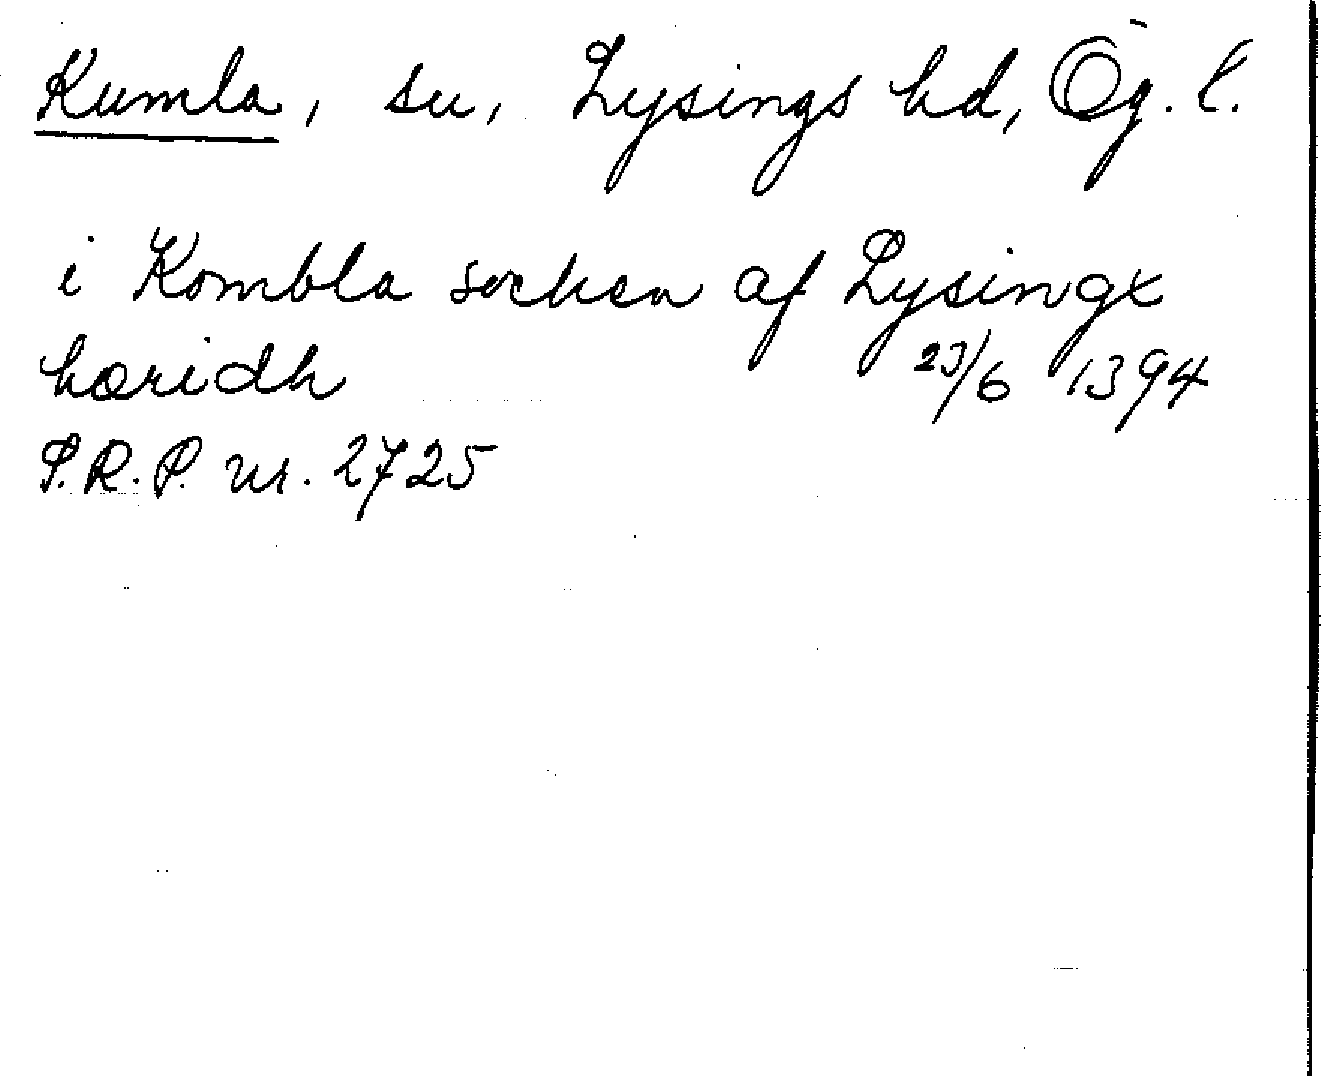 Kumla, sn, Lysings hd, Ög. l.
i Kombla sochen af Lysingx
hæridh 23/6 1394
P.R.P. nr. 2725